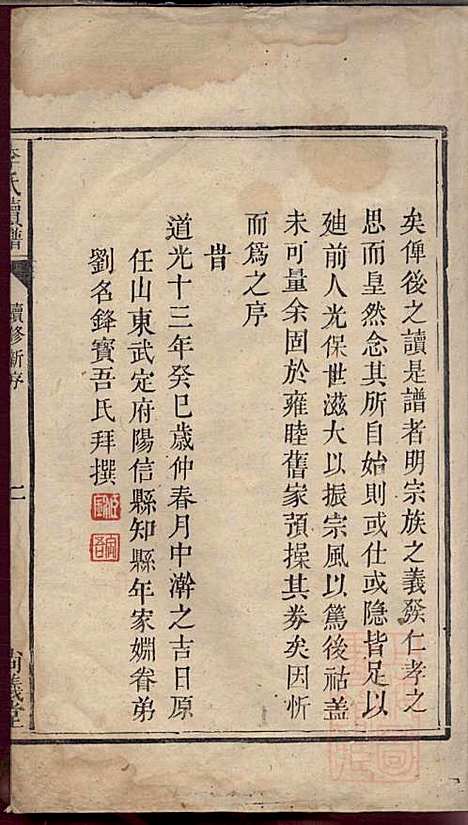 矣俾後之讀是譜者明宗族之義發仁孝之
思而皇然念其所自始則或仕或隱皆足以
廸前人光保世滋大以振宗風以篤後祜蓋
未可量余固於雍睦舊家預操其券矣因忻
而爲之序
旹
道光十三年癸巳歲仲春月中澣之吉日原
任山東武定府陽信縣知縣年家姻眷弟
劉名鋒寶吾氏拜撰
李氏續譜
續修新序
二
尚義堂